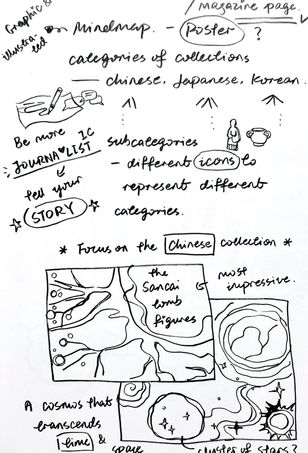 /magazine page.
Graphic &
illustrated
Mindmap. - Poster ?
categories of collections
— chinese, Japanese, Korean.
Be more
JOURNALIST
tell your
STORY
subcategories
- different icons to
represent different
categories.
* Focus on the Chinese collection *
the
Sancai
tomb
figures
most
impressive.
A cosmos that
transcends
time &
space
cluster of stars?